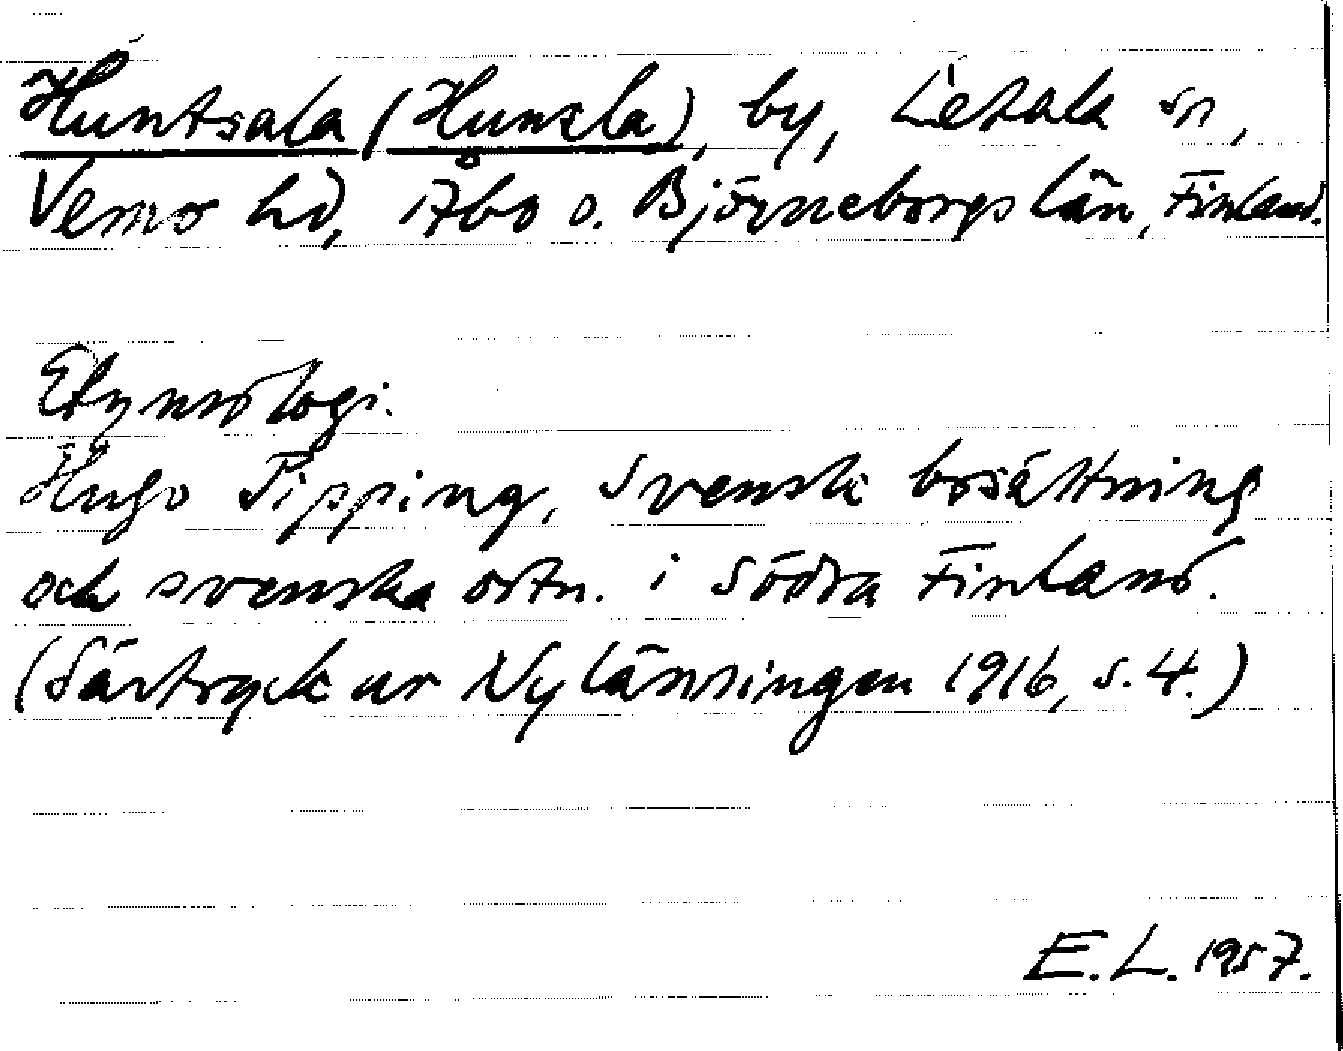 Huntsala (Hunsla), by, Letala sn,
Vemo hd, Åbo o. Björneborgs län, Finland.
Etymologi.
Hugo Pipping, Svensk bosättning
och svenska ortn. i södra Finland.
(Särtryck ur Nylänningen 1916, s. 4.)
E.L. 1957.